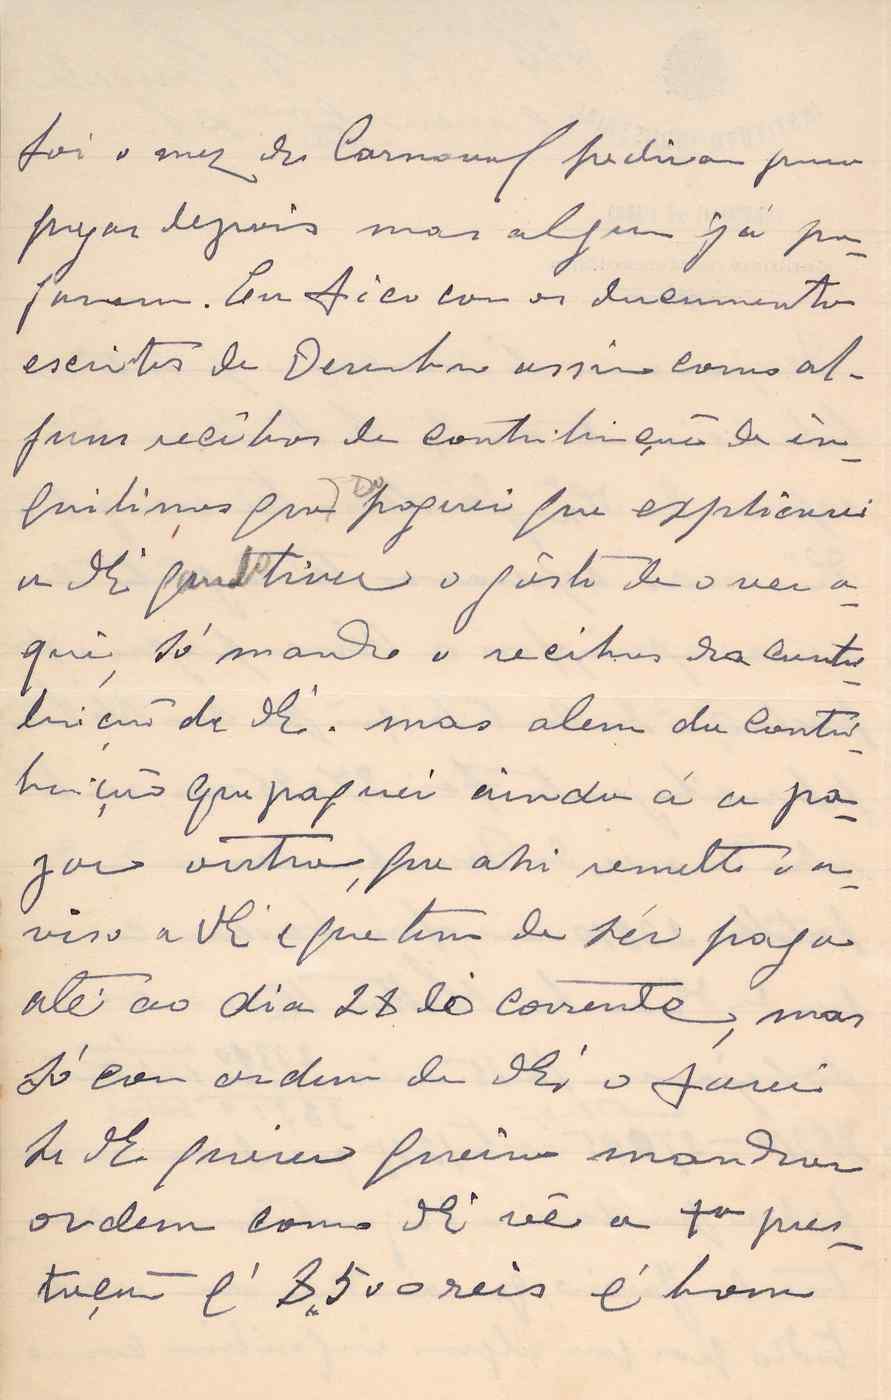 foi o mez do Carnaval pediram para
pagar depois mas algun já pa-
garam. Eu fico con os ducumento
escritos de Desenbro assin como al-
guns recibos de contribuição de in-
quilinos que paguei que explicarei
a VEª quando tiver o gôsto de o ver a-
qui, só mando o recibus da contri-
buição de VEª. mas alem da contri-
buição que paguei ainda á a pa-
gar outra, que ahi remetto o a-
viso a VEª e que tem de sér pago
até ao dia 28 do corrente, mas
só con ordem de VEª o farei
se VEª quizer queira mandar
ordem como VEª vê a 1ª pres-
tação é 8,500 reis é bom